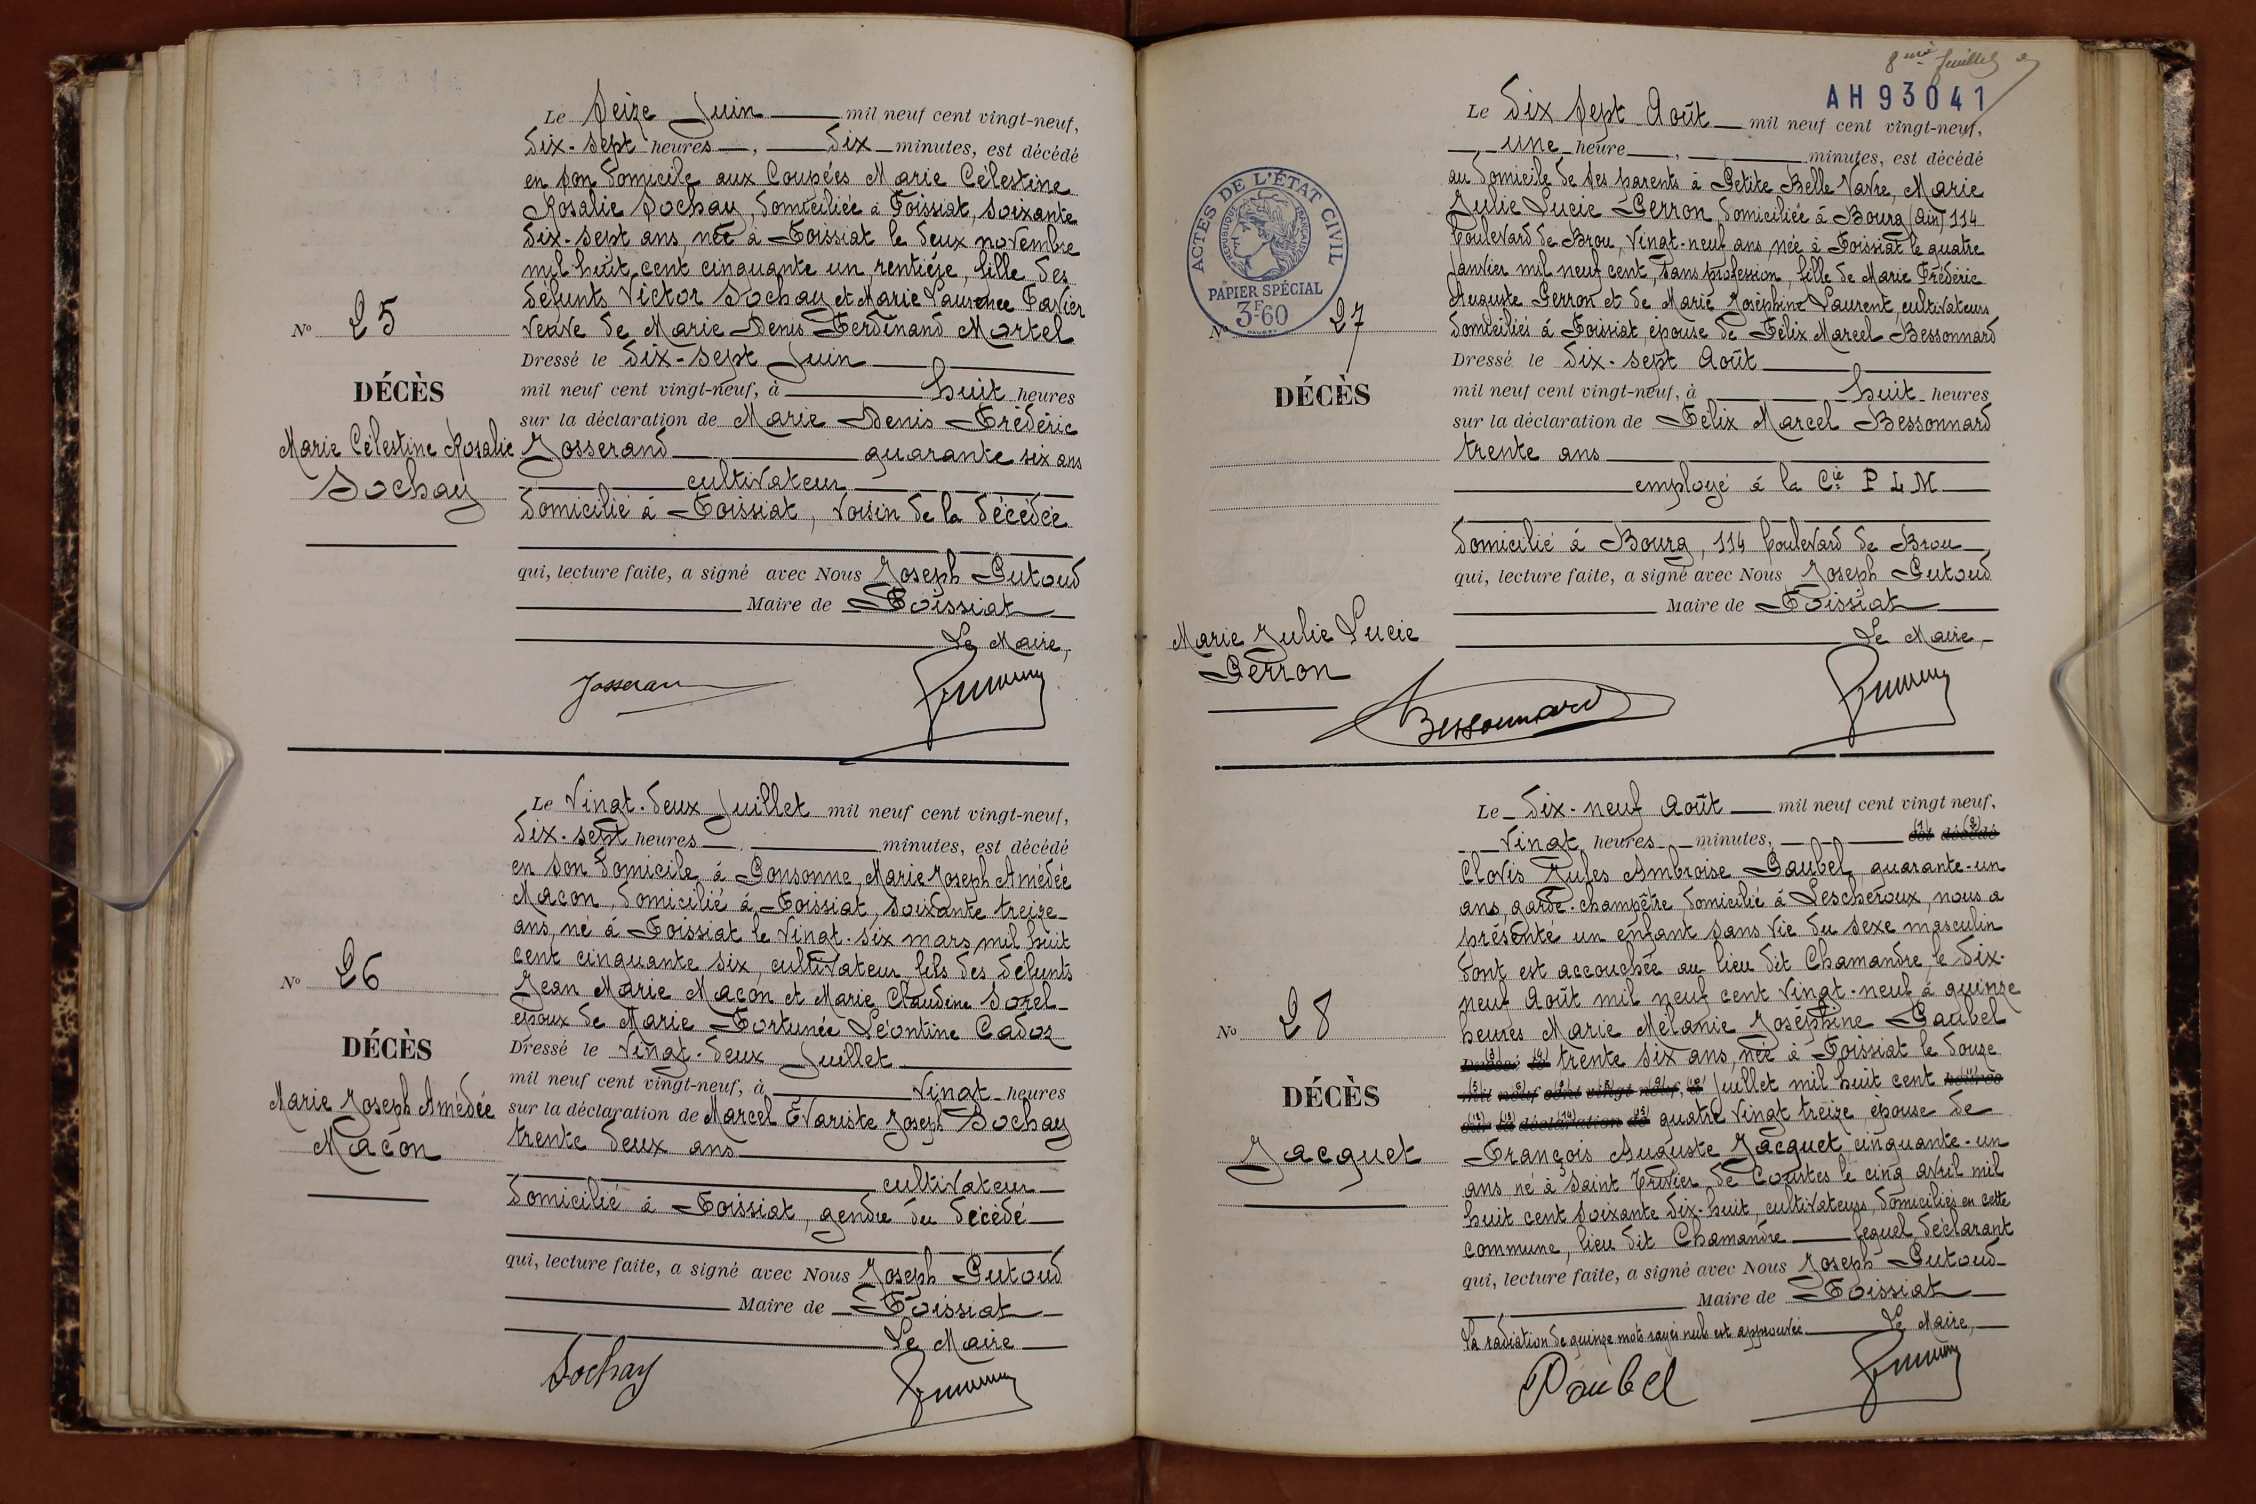 Le Seize Juin mil neuf cent vingt-neuf,
dix-sept heures, dix minutes, est décédé
en son domicile aux Coupées Marie Célestine
Rosalie Sochay, domiciliée à Foissiat, soixante
dix-sept ans, née à Foissiat le deux novembre
mil huit cent cinquante un, rentière, fille des
défunts Victor Sochay et Marie Laurence Favier
veuve de Marie Denis Ferdinand Mortel
Dressé le dix-sept Juin
mil neuf cent vingt-neuf, à huit heures
sur la déclaration de Marie Denis Frédéric
Josserand quarante six ans
cultivateur
domicilié à Foissiat, voisin de la décédée
qui, lecture faite, a signé avec Nous Joseph Putoud
Maire de Foissiat
Le Maire,
Josseran
No 25
DÉCÈS
Marie Célestine Rosalie
Sochay
Le Vingt-deux Juillet mil neuf cent vingt-neuf,
dix-sept heures minutes, est décédé
en son domicile à Gonsonne, Marie Joseph Amédée
Macon, domicilié à Foissiat, soixante treize
ans, né à Foissiat le vingt-six mars mil huit
cent cinquante six, cultivateur, fils des défunts
Jean Marie Macon et Marie Claudine Sorel
époux de Marie Fortunée Léontine Cadoz
Dressé le vingt-deux Juillet
mil neuf cent vingt-neuf, à vingt heures
sur la déclaration de Marcel Évariste Joseph Sochay
trente deux ans
cultivateur
domicilié à Foissiat, gendre du décédé
qui, lecture faite, a signé avec Nous Joseph Putoud
Maire de Foissiat
Le Maire
Sochay
No 26
DÉCÈS
Marie Joseph Amédée
Macon
8me feuillet
AH93041
ACTES DE L'ÉTAT CIVIL
RÉPUBLIQUE FRANÇAISE
PAPIER SPÉCIAL
3F60
Le dix sept Août mil neuf cent vingt-neuf,
une heure, minutes, est décédé
au domicile de ses parents à Petite Belle Vavre, Marie
Julie Lucie Perron, domiciliée à Bourg (Ain) 114
boulevard de Brou, vingt-neuf ans, née à Foissiat le quatre
janvier mil neuf cent, sans profession, fille de Marie Frédéric
Auguste Perron et de Marie Joséphine Laurent, cultivateurs
domiciliés à Foissiat, épouse de Félix Marcel Bessonnard
Dressé le dix-sept Août
mil neuf cent vingt-neuf, à huit heures
sur la déclaration de Félix Marcel Bessonnard
trente ans
employé à la Cie P L M
domicilié à Bourg, 114 boulevard de Brou
qui, lecture faite, a signé avec Nous Joseph Putoud
Maire de Foissiat
Le Maire,
Bessonnard
No 27
DÉCÈS
Marie Julie Lucie
Perron
Le dix-neuf Août mil neuf cent vingt neuf,
vingt heures minutes, est décédé
Clovis Jules Ambroise Paubel, quarante-un
ans, garde-champêtre, domicilié à Lescheroux, nous a
présenté un enfant sans vie du sexe masculin
dont est accouchée au lieu dit Chamandre, le dix-
neuf Août mil neuf cent vingt-neuf à quinze
heures Marie Mélanie Joséphine Paubel
Dressé le trente six ans, née à Foissiat le douze
mil neuf cent vingt neuf, à Juillet mil huit cent heures
sur la déclaration de quatre vingt treize, épouse de
François Auguste Jacquet, cinquante-un
ans né à Saint Trivier de Courtes le cinq avril mil
huit cent soixante dix-huit, cultivateurs, domiciliés en cette
commune, lieu dit Chamandre lequel déclarant
qui, lecture faite, a signé avec Nous Joseph Putoud
Maire de Foissiat
La radiation de quinze mots rayés nuls est approuvée Le Maire,
Paubel
No 28
DÉCÈS
Jacquet